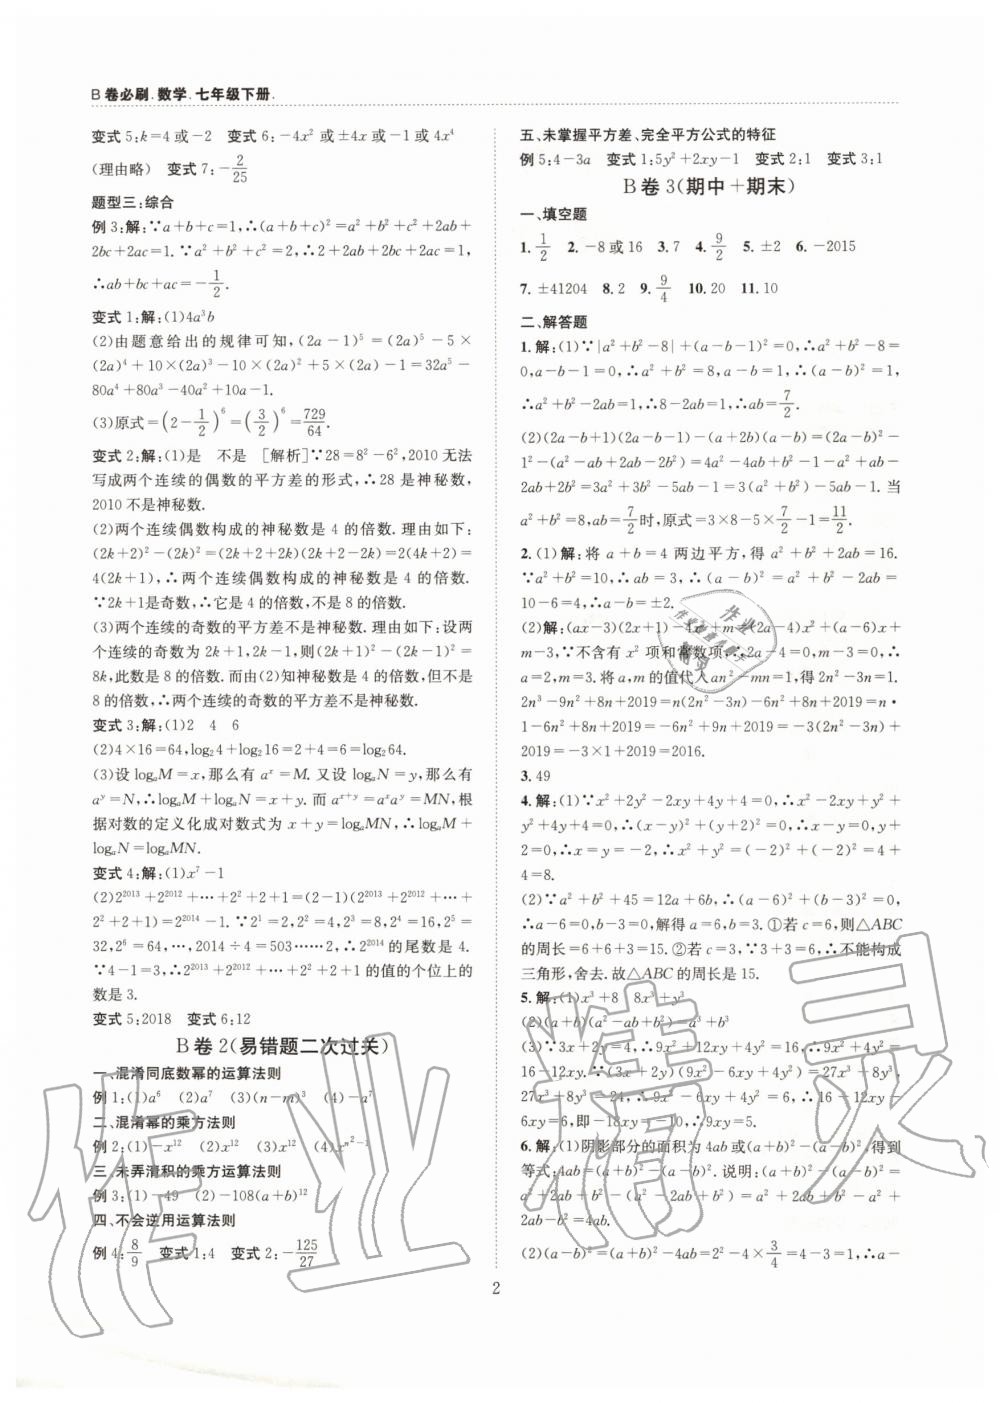 B 卷必刷.数学.七年级下册.
变式 5:k=4 或-2 变式 6:-4x² 或±4x 或-1 或 4x⁴
(理由略) 变式 7:-2/25
题型三:综合
例 3:解:∵a+b+c=1,∴(a+b+c)²=a²+b²+c²+2ab+
2bc+2ac=1.∵a²+b²+c²=2,∴2+2ab+2bc+2ac=1,
∴ab+bc+ac=-1/2.
变式 1:解:(1)4a³b
(2)由题意给出的规律可知,(2a-1)⁵=(2a)⁵-5×
(2a)⁴+10×(2a)³-10×(2a)²+5×(2a)-1=32a⁵-
80a⁴+80a³-40a²+10a-1.
(3)原式=(2-1/2)⁶=(3/2)⁶=729/64.
变式 2:解:(1)是 不是 [解析]∵28=8²-6²,2010 无法
写成两个连续的偶数的平方差的形式,∴28 是神秘数,
2010 不是神秘数.
(2)两个连续偶数构成的神秘数是 4 的倍数.理由如下:
(2k+2)²-(2k)²=(2k+2-2k)(2k+2+2k)=2(4k+2)=
4(2k+1),∴两个连续偶数构成的神秘数是 4 的倍数.
∵2k+1是奇数,∴它是 4 的倍数,不是 8 的倍数.
(3)两个连续的奇数的平方差不是神秘数.理由如下:设两
个连续的奇数为 2k+1,2k-1,则(2k+1)²-(2k-1)²=
8k,此数是 8 的倍数.而由(2)知神秘数是 4 的倍数,但不是
8 的倍数,所以两个连续的奇数的平方差不是神秘数.
变式 3:解:(1)2 4 6
(2)4×16=64,log₂4+log₂16=2+4=6=log₂64.
(3)设 logₐM=x,那么有 aˣ=M,设 logₐN=y,那么有
aʸ=N,∴logₐM+logₐN=x+y.而 aˣ⁺ʸ=aˣaʸ=MN,根
据对数的定义化成对数式为 x+y=logₐMN,∴logₐM+
logₐN=logₐMN.
变式 4:解:(1)x⁷-1
(2)2²⁰¹³+2²⁰¹²+…+2²+2+1=(2-1)(2²⁰¹³+2²⁰¹²+…+
2²+2+1)=2²⁰¹⁴-1.∵2¹=2,2²=4,2³=8,2⁴=16,2⁵=
32,2⁶=64,…,2014÷4=503……2,∴2²⁰¹⁴的尾数是 4.
∵4-1=3,∴2²⁰¹³+2²⁰¹²+…+2²+2+1的值的个位上的
数是 3.
变式 5:2018 变式 6:12
B 卷 2(易错题二次过关)
一.混淆同底数幂的运算法则
例 1:(1)a⁶ (2)a⁷ (3)(n-m)³ (4)-a⁷
二.混淆幂的乘方法则
例 2:(1)-x¹² (2)-x¹² (3)x¹² (4)xⁿ²⁻¹
三.未弄清积的乘方运算法则
例 3:(1)-49 (2)-108(a+b)¹²
四、不会逆用运算法则
例 4:8/9 变式 1:4 变式 2:-125/27
五、未掌握平方差、完全平方公式的特征
例 5:4-3a 变式 1:5y²+2xy-1 变式 2:1 变式 3:1
B 卷 3(期中+期末)
一、填空题
1.1/2 2.-8或16 3.7 4.9/2 5.±2 6.-2015
7.±41204 8.2 9.9/4 10.20 11.10
二、解答题
1.解:(1)∵|a²+b²-8|+(a-b-1)²=0,∴a²+b²-8=
0,a-b-1=0,∴a²+b²=8,a-b=1,∴(a-b)²=1,
∴a²+b²-2ab=1,∴8-2ab=1,∴ab=7/2.
(2)(2a-b+1)(2a-b-1)-(a+2b)(a-b)=(2a-b)²-
1-(a²-ab+2ab-2b²)=4a²-4ab+b²-1-a²+ab-
2ab+2b²=3a²+3b²-5ab-1=3(a²+b²)-5ab-1.当
a²+b²=8,ab=7/2时,原式=3×8-5×7/2-1=11/2.
2.(1)解:将 a+b=4 两边平方,得 a²+b²+2ab=16.
∵a²+b²=10,∴ab=3,∴(a-b)²=a²+b²-2ab=
10-6=4,∴a-b=±2.
(2)解:(ax-3)(2x+1)-4x²+m=(2a-4)x²+(a-6)x+
m-3,∵不含有 x² 项和常数项,∴2a-4=0,m-3=0,∴a
=2,m=3.将 a,m 的值代入an²-mn=1,得 2n²-3n=1.
2n³-9n²+8n+2019=n(2n²-3n)-6n²+8n+2019=n•
1-6n²+8n+2019=-6n²+9n+2019=-3(2n²-3n)+
2019=-3×1+2019=2016.
3.49
4.解:(1)∵x²+2y²-2xy+4y+4=0,∴x²-2xy+y²+
y²+4y+4=0,∴(x-y)²+(y+2)²=0,∴x-y=0,y+
2=0,∴x=y=-2,∴x²+y²=(-2)²+(-2)²=4+
4=8.
(2)∵a²+b²+45=12a+6b,∴(a-6)²+(b-3)²=0,
∴a-6=0,b-3=0,解得 a=6,b=3.①若 c=6,则△ABC
的周长=6+6+3=15.②若 c=3,∵3+3=6,∴不能构成
三角形,舍去.故△ABC 的周长是 15.
5.解:(1)x³+8 8x³+y³
(2)(a+b)(a²-ab+b²)=a³+b³
(3)∵3x+4y=4,∴9x²+24xy+16y²=16,∴9x²+16y²=
16-12xy.∵(3x+4y)(9x²-12xy+16y²)=27x³+64y³,
6.解:(1)阴影部分的面积为 4ab或(a+b)²-(a-b)²,得到
等式:4ab=(a+b)²-(a-b)².说明:(a+b)²-(a-b)²=
a²+2ab+b²-(a²-2ab+b²)=a²+2ab+b²-a²+
2ab-b²=4ab.
(2)(a-b)²=(a+b)²-4ab=2²-4×3/4=4-3=1,∴a-
2
作业精灵